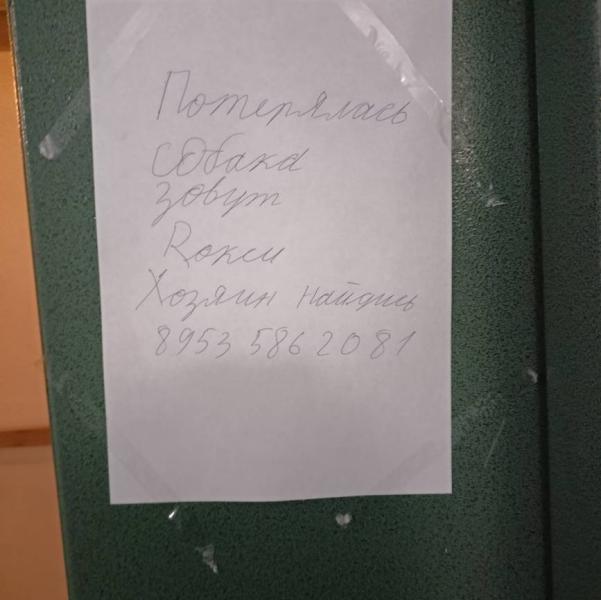 Потерялась
собака
зовут
Рокси
Хозяин найдись
8953 586 20 81